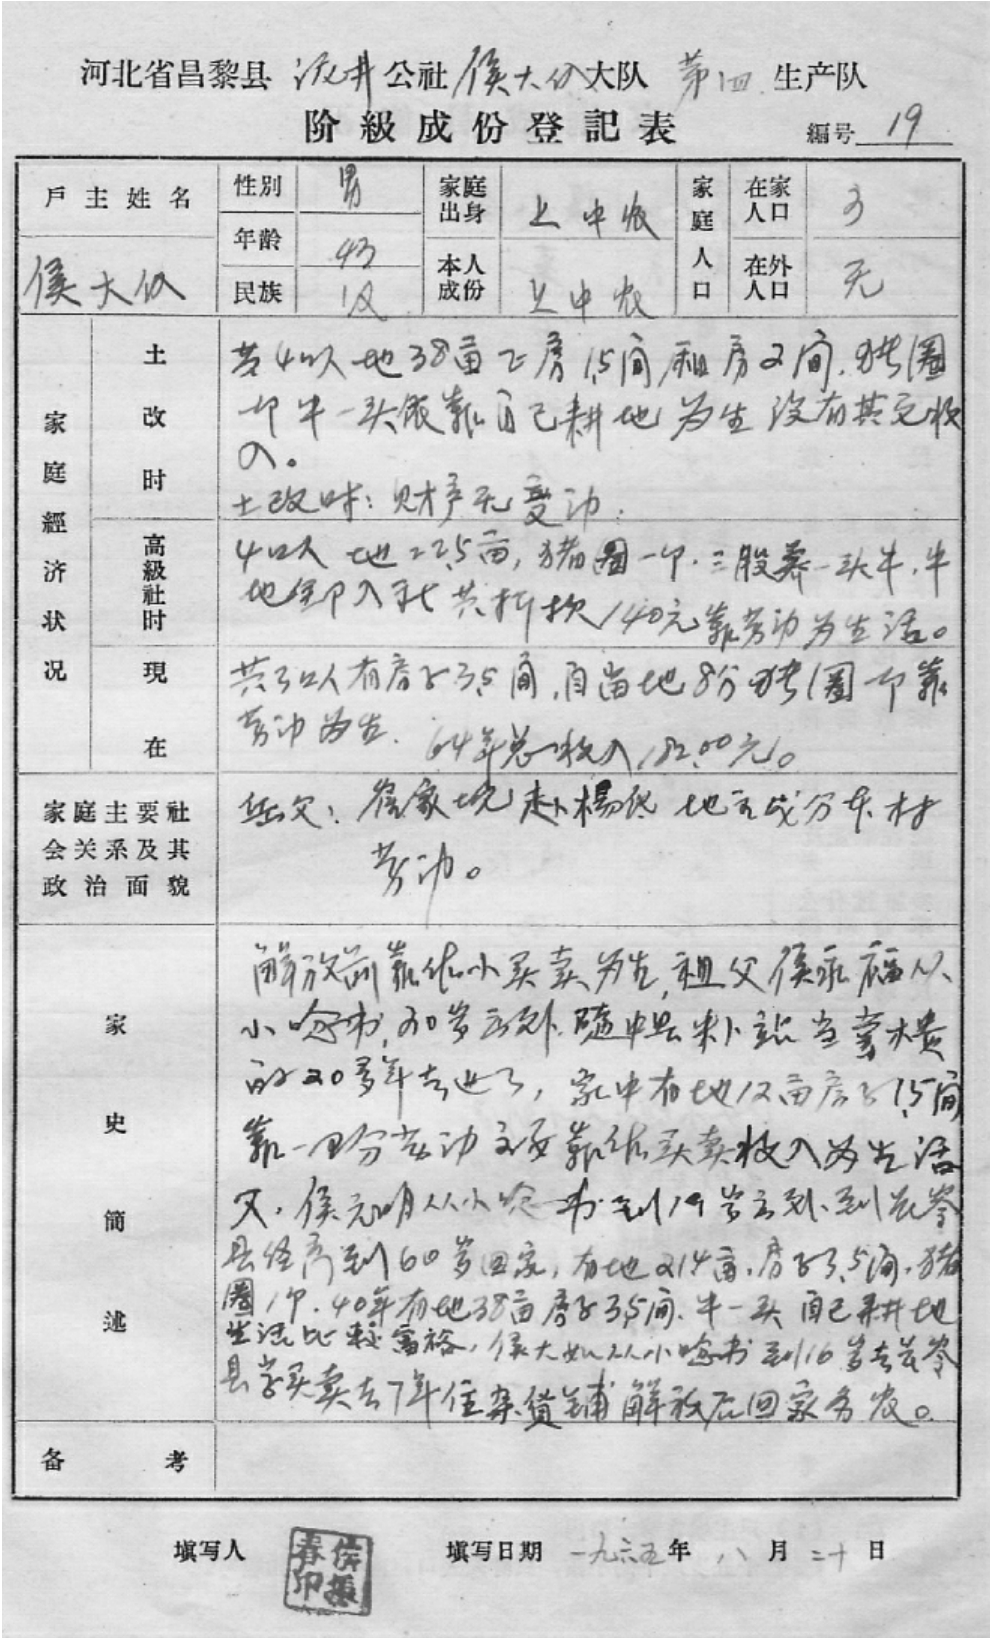 河北省昌黎县 泥井 公社 侯大仈 大队 第四 生产队
阶級成份登記表 編号 19
戶主姓名 性別 男 家庭出身 上中农 家庭人口 在家人口 3
年齡 43
侯大仈 民族 汉 本人成份 上中农 在外人口 无
家庭經济状况
土改时
共4口人地38亩 房1.5间租房2间,猪圈
一个牛一头依靠自己耕地为生没有其它收
入。
土改时:财产无变动.
高級社时
4口人 地22.5亩,猪圈一个.三股养一头牛.牛
地全部入社共折款140元靠劳动为生活。
現在
共3口人有房子3.5间,自留地8分猪圈一个靠
劳动为生. 64年总收入182.00元。
家庭主要社会关系及其政治面貌
岳父:崔家坨 赵楊 地主成分在村
劳动。
家史簡述
解放前靠做小买卖为生,祖父侯永福从
小念书,20岁
的20多年去逝了,家中有地12亩房子1.5间
靠一部分劳动主要靠做买卖收入为生活
父.侯元明从小念书到19岁
县经商到60岁回家,有地214亩.房子3.5间.猪
圈1个.40年有地38亩房子3.5间.牛一头自己耕地
生活比較富裕,侯大 从小念书到16岁去
县学买卖去7年住杂货铺解放后回家务农。
备考
填写人 侯振春印 填写日期 一九六五年 八月 二十日